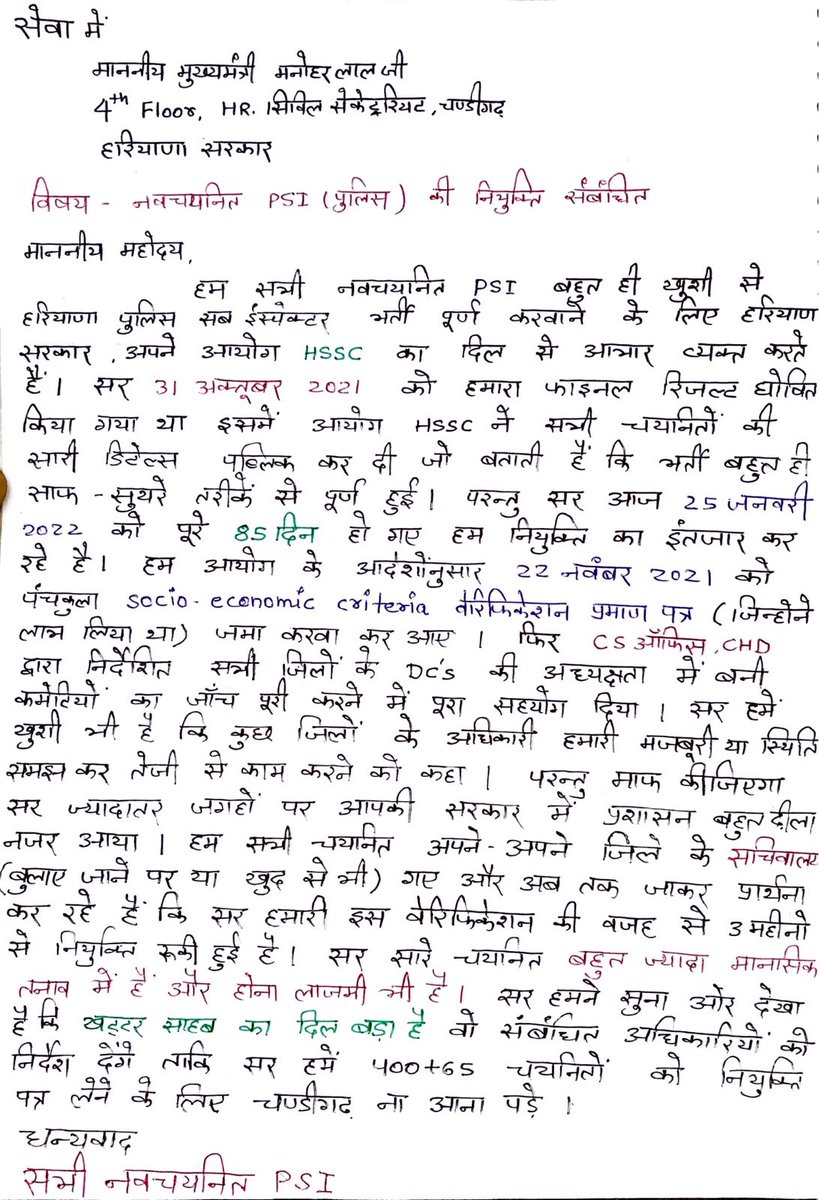 सेवा में
माननीय मुख्यमंत्री मनोहर लाल जी
4th Floor, HR. सिविल सेकेट्रियट, चण्डीगढ़
हरियाणा सरकार
विषय - नवचयनित PSI (पुलिस) की नियुक्ति संबंधित
माननीय महोदय,
हम सभी नवचयनित PSI बहुत ही खुशी से
हरियाणा पुलिस सब इंस्पेक्टर भर्ती पूर्ण करवाने के लिए हरियाण
सरकार, अपने आयोग HSSC का दिल से आभार व्यक्त करते
हैं। सर 31 अक्तूबर 2021 को हमारा फाइनल रिजल्ट घोषित
किया गया था इसमें आयोग HSSC ने सभी चयनितों की
सारी डिटेल्स पब्लिक कर दी जो बताती हैं कि भर्ती बहुत ही
साफ - सुथरे तरीकें से पूर्ण हुई। परन्तु सर आज 25 जनवरी
2022 को पूरे 85 दिन हो गए हम नियुक्ति का इंतजार कर
रहे है। हम आयोग के आदेशोंनुसार 22 नवंबर 2021 को
पंचकुला socio-economic criteria वेरिफिकेशन प्रमाण पत्र (जिन्होने
लाभ लिया था) जमा करवा कर आए । फिर CS ऑफिस, CHD
द्वारा निर्देशित सभी जिलों के DC's की अध्यक्षता में बनी
कमेटियों का जाँच पूरी करने में पूरा सहयोग दिया । सर हमें
खुशी भी है कि कुछ जिलों के अधिकारी हमारी मजबूरी या स्थिति
समझ कर तेजी से काम करने को कहा । परन्तु माफ कीजिएगा
सर ज्यादातर जगहों पर आपकी सरकार में प्रशासन बहुत ढीला
नजर आया । हम सभी चयनित अपने-अपने जिले के सचिवालय
(बुलाए जाने पर या खुद से भी) गए और अब तक जाकर प्रार्थना
कर रहे हैं कि सर हमारी इस वेरिफिकेशन की वजह से 3 महीनो
से नियुक्ति रूकी हुई है। सर सारे चयनित बहुत ज्यादा मानसिक
तनाव में हैं और होना लाजमी भी है। सर हमने सुना ओर देखा
है कि खट्टर साहब का दिल बड़ा है वो संबंधित अधिकारियों को
निर्देश देंगे ताकि सर हमें 400+65 चयनितों को नियुक्ति
पत्र लेने के लिए चण्डीगढ़ ना आना पड़े ।
धन्यवाद
सभी नवचयनित PSI